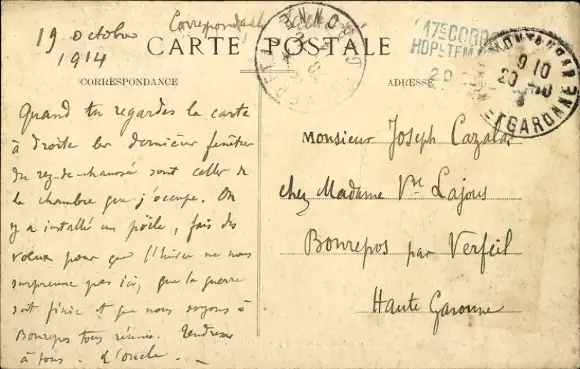 19 octobre
1914
Correspondance
CARTE POSTALE
17e CORP
20
9 10
20 -10
GARONNE
CORRESPONDANCE
ADRESSE
Quand tu regardes la carte
à droite les dernières fenêtres
du rez-de-chaussé sont celles de
la chambre que j'occupe. On
y a installé un poële, fais des
vœux pour que l'hiver ne nous
surprenne pas ici, que la guerre
soit finie et que nous soyons à
Bonrepos tous réunis. Tendresses
à tous. L'oncle.
Monsieur Joseph Cazalas
chez Madame Vve Lajous
Bonrepos par Verfeil
Haute Garonne